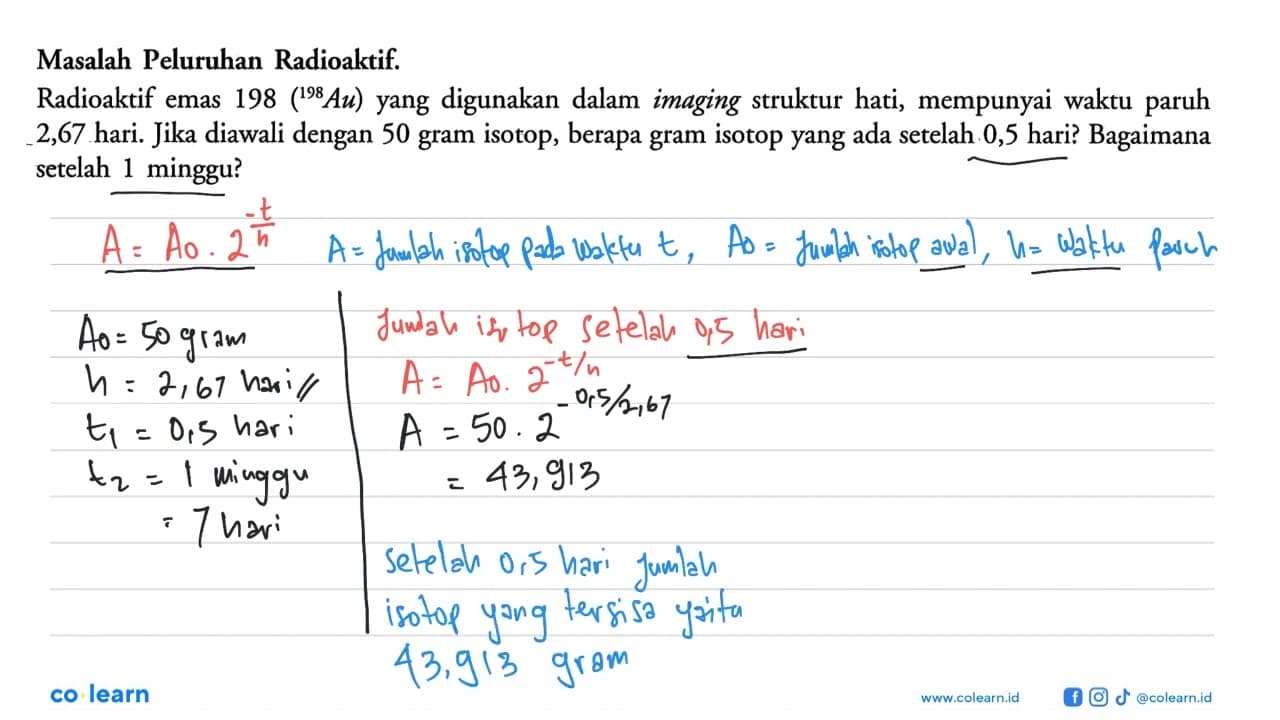 Masalah Peluruhan Radioaktif.
Radioaktif emas 198 (¹⁹⁸Au) yang digunakan dalam imaging struktur hati, mempunyai waktu paruh
2,67 hari. Jika diawali dengan 50 gram isotop, berapa gram isotop yang ada setelah 0,5 hari? Bagaimana
setelah 1 minggu?
A = A0 . 2^(-t/h) A = Jumlah isotop pada waktu t, A0 = Jumlah isotop awal, h = waktu paruh
A0 = 50 gram
h = 2,67 hari //
t1 = 0,5 hari
t2 = 1 minggu
= 7 hari
Jumlah isotop setelah 0,5 hari
A = A0 . 2^(-t/h)
A = 50 . 2^(-0,5/2,67)
= 43,913
setelah 0,5 hari jumlah
isotop yang tersisa yaitu
43,913 gram
co learn
www.colearn.id @colearn.id